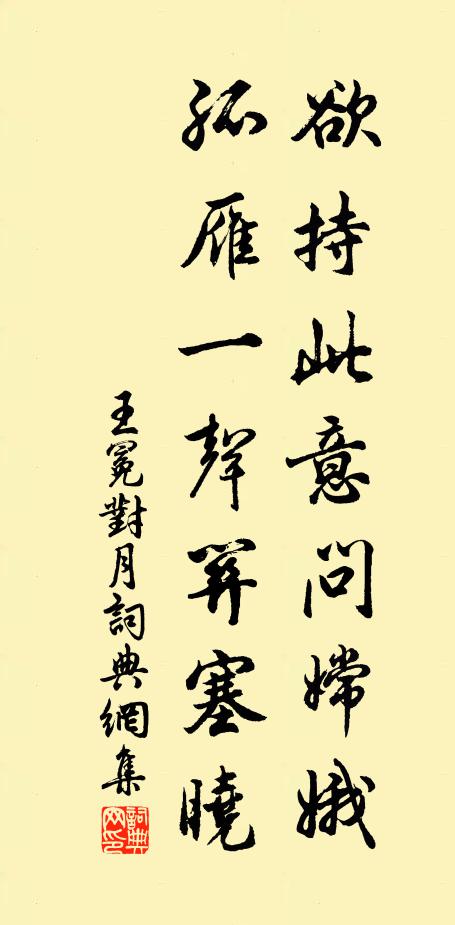 欲持此意問嫦娥
孤雁一聲關塞曉
王冕對月詞典網集
詞典网印